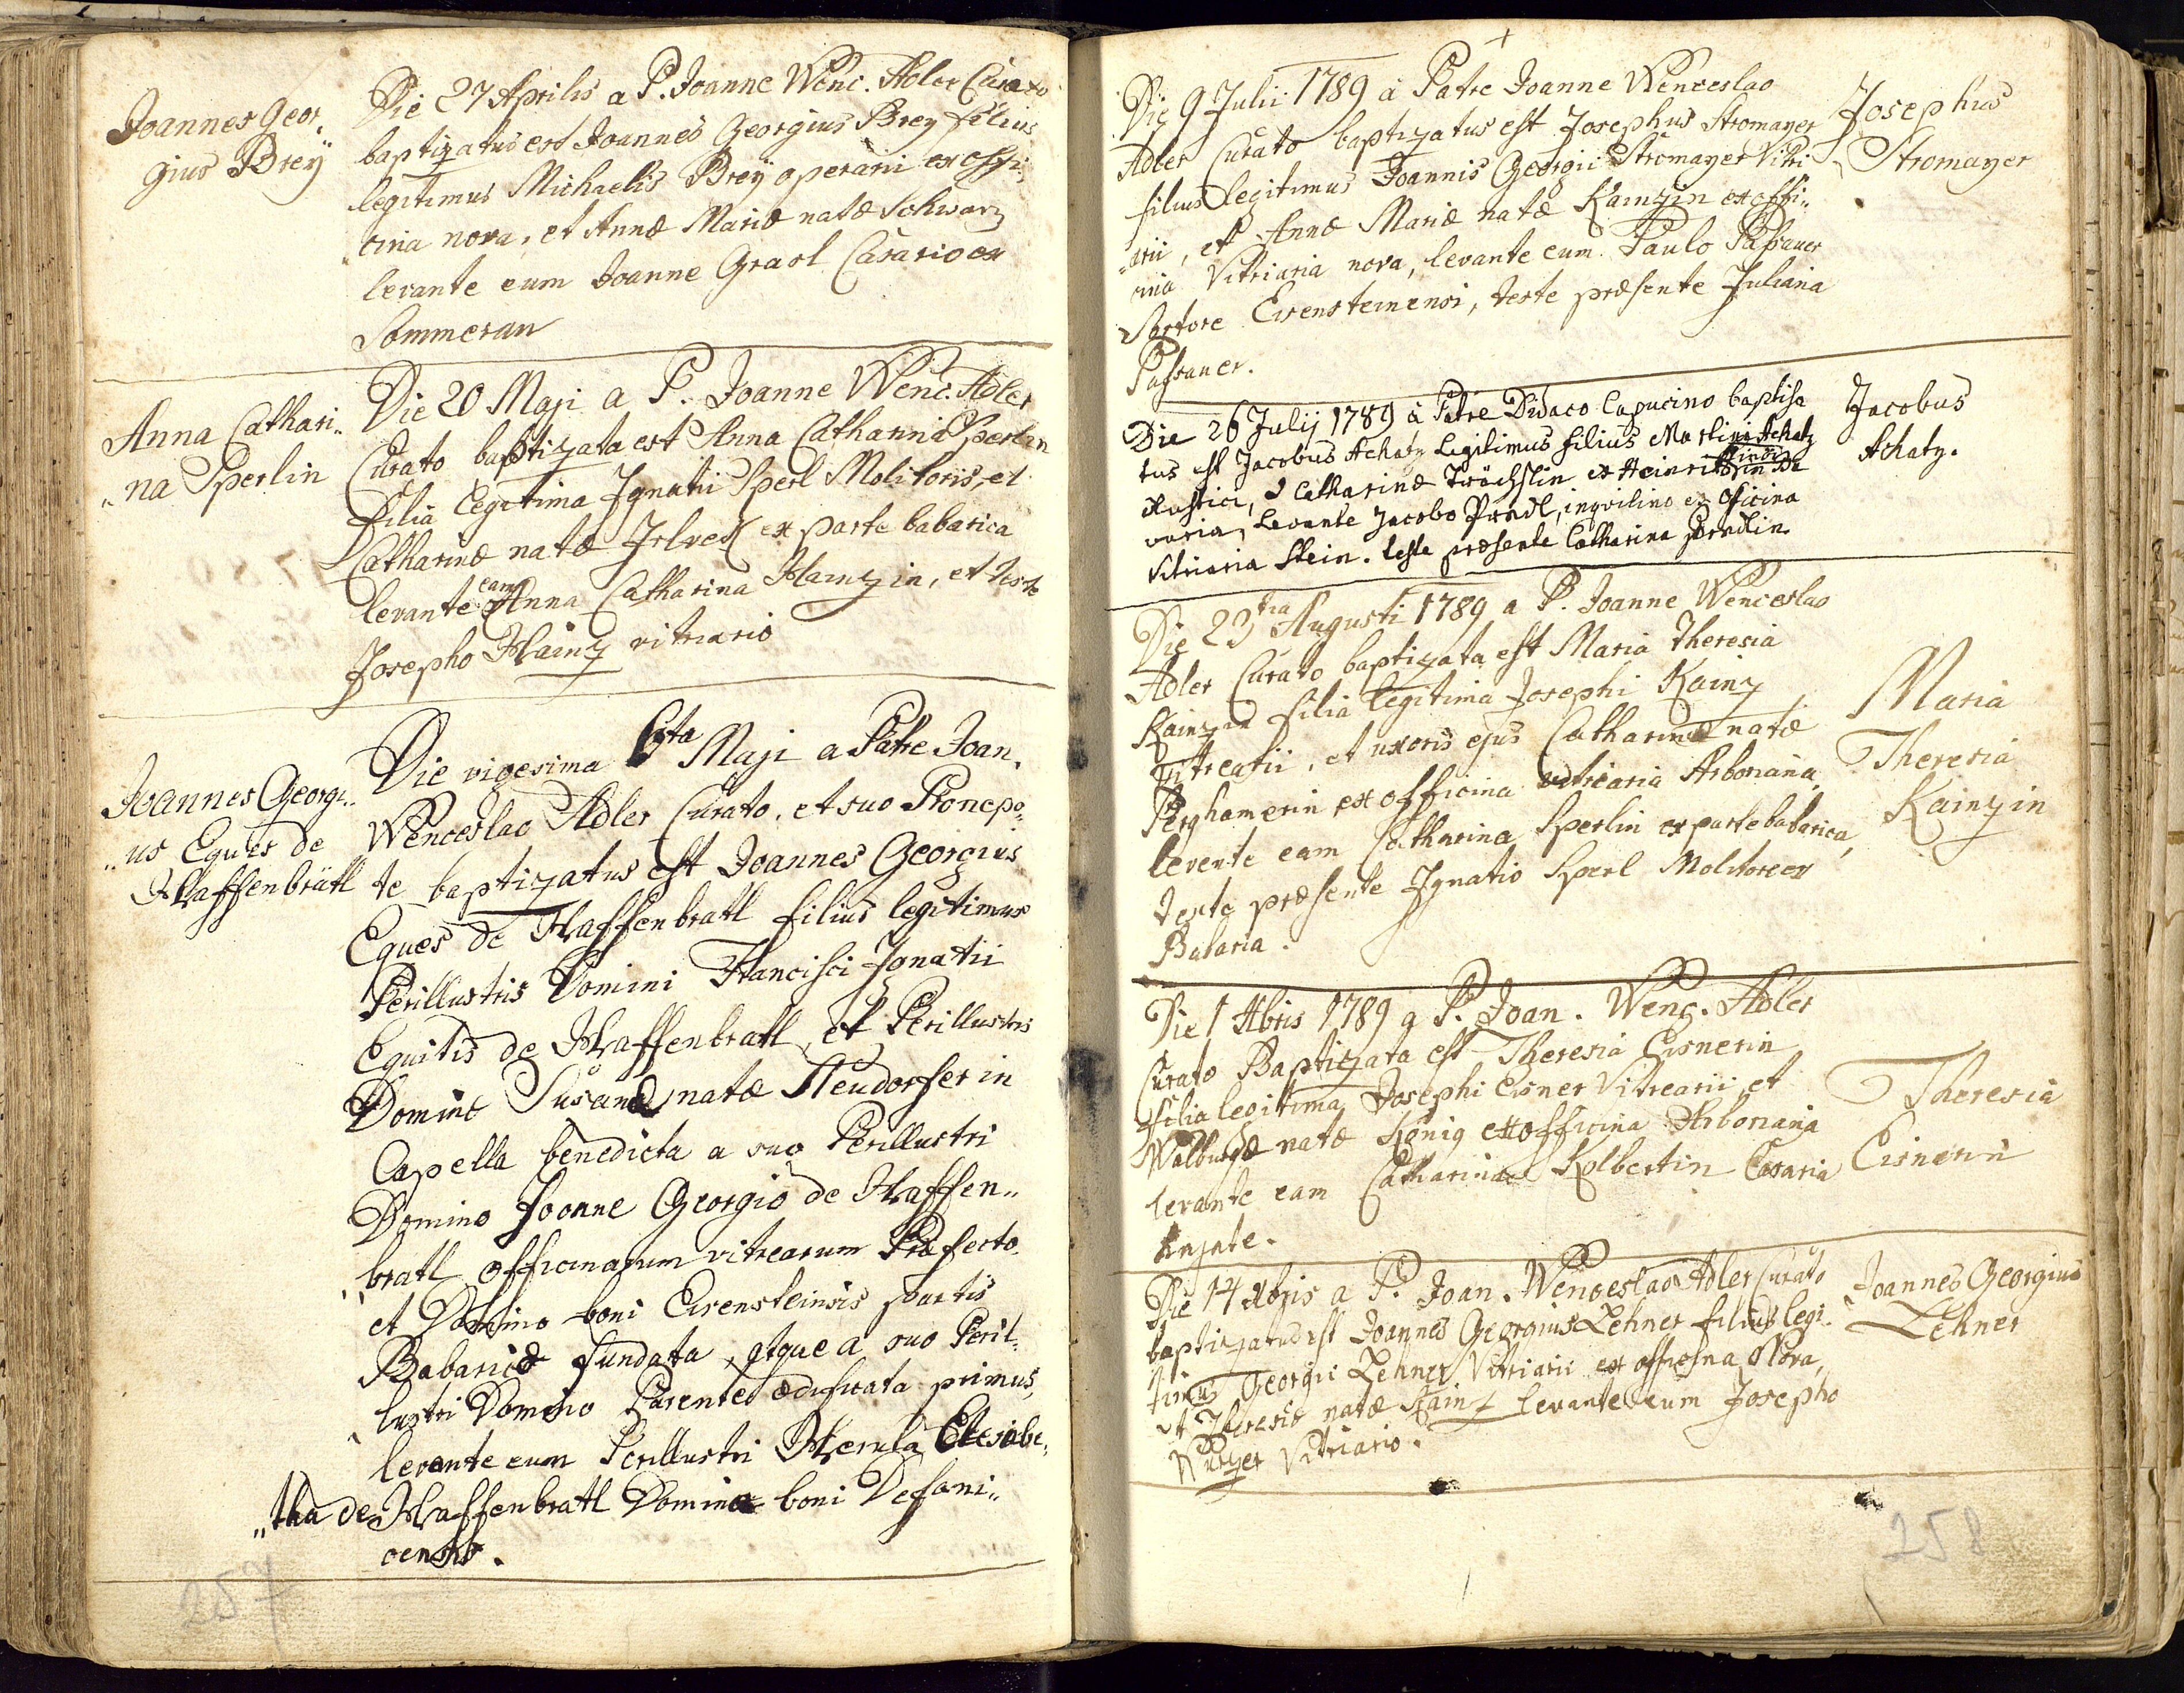 Joannes Geor„
gius Breÿ
Die 27 Aprilis a P. Joanne Wenc. Adler Curato
baptizatus est Joannes Georgius Brey filius
legitimus Michaelis Breÿ operarii ex offi„
cina nova, et Annæ Mariæ natæ Schwarz
levante eum Joanne Grasl Casario ex
Sommerau
Anna Cathari„
„na Sperlin
Die 20 Maji a P. Joanne Wenc. Adler
Curato baptizata est Anna Catharina Sperlin
filia legitima Ignatii Sperl Molitoris, et
Catharinæ natæ ex parte babarica
levante eam Anna Catharina Hainzin, et teste
Josepho Hainz vitriario
Joannes Georgi„
„us Eques de
Haffenbrätl
Die vigesima 6ta Maji a Patre Joan.
Wenceslao Adler Curato, et suo Pronepo„
te baptizatus est Joannes Georgius
Eques de Haffenbratl filius legitimus
Perillustris Domini Francisci Ignatii
Equitis de Haffenbratl, et Perillustris
Dominæ Susanæ natæ Neudorfer in
Capella benedicta a suo Perillustri
Domino Joanne Georgio de Haffen„
„bratl officinarum vitrearum Præfecto
et Domino boni Eisensteinsis partis
Babariæ fundata, atque a suo Peril„
lustri Domino Parente ædificata primus,
levante eum Perillustri Herula Elesabe„
„tha de Haffenbratl Domina boni Defani„
censis.
257
Die 9 Julii 1789 à Patre Joanne Wenceslao
Adler Curato baptizatus est Josephus Stromayer
filius legitimus Joannis Georgii Stromayer Vitri
„arii, et Annæ Mariæ natæ Kainzin ex offi„
cina Vitriaria nova, levante eum Paulo Paßauer
Sartore Eisensteinensi, teste præsente Juliana
Paßauer.
Josephus
Stromayer
Die 26 Julij 1789 à Patre Didaco Capucino baptisa
tus est Jacobus Achatz legitimus filius Martini Achatz
Rustici, & Catharinæ Tröchslin ex Ba
varia, levante Jacobo Prndl, inquilino ex officina
vitriaria Stein. teste præsente Catharina Prndlin.
Jacobus
Achatz.
Die 23tia Augusti 1789 a P. Joanne Wenceslao
Adler Curato baptizata est Maria Theresia
Kainzin filia legitima Josephi Kainz
Vitrearii, et uxoris ejus Catharinæ natæ
Perghamerin ex officina vitriaria Arboriana
levente eam Catharina Sperlin ex parte babarica,
teste præsente Ignatio Sperl Molitore ex
Babaria.
Maria
Theresia
Kainzin
Die 1 Abris 1789 a P. Joan. Wenc. Adler
Curato Baptizata est Theresia Eisnerin
filia legitima Josephi Eisner Vitrearii, et
Walburgæ natæ König ex officina Arboriana
levante eam Catharina Kolbertin Casaria
Theresia
Eisnerin
Die 14 Xbris a P. Joan. Wenceslao Adler Curato
baptizatus est Joannes Georgius Lehner filius legi„
timus Georgii Lehner Vitriarii ex officina Nova,
et Theresiæ natæ Kainz levante eum Josepho
Vitriario.
Joannes Georgius
Lehner
258